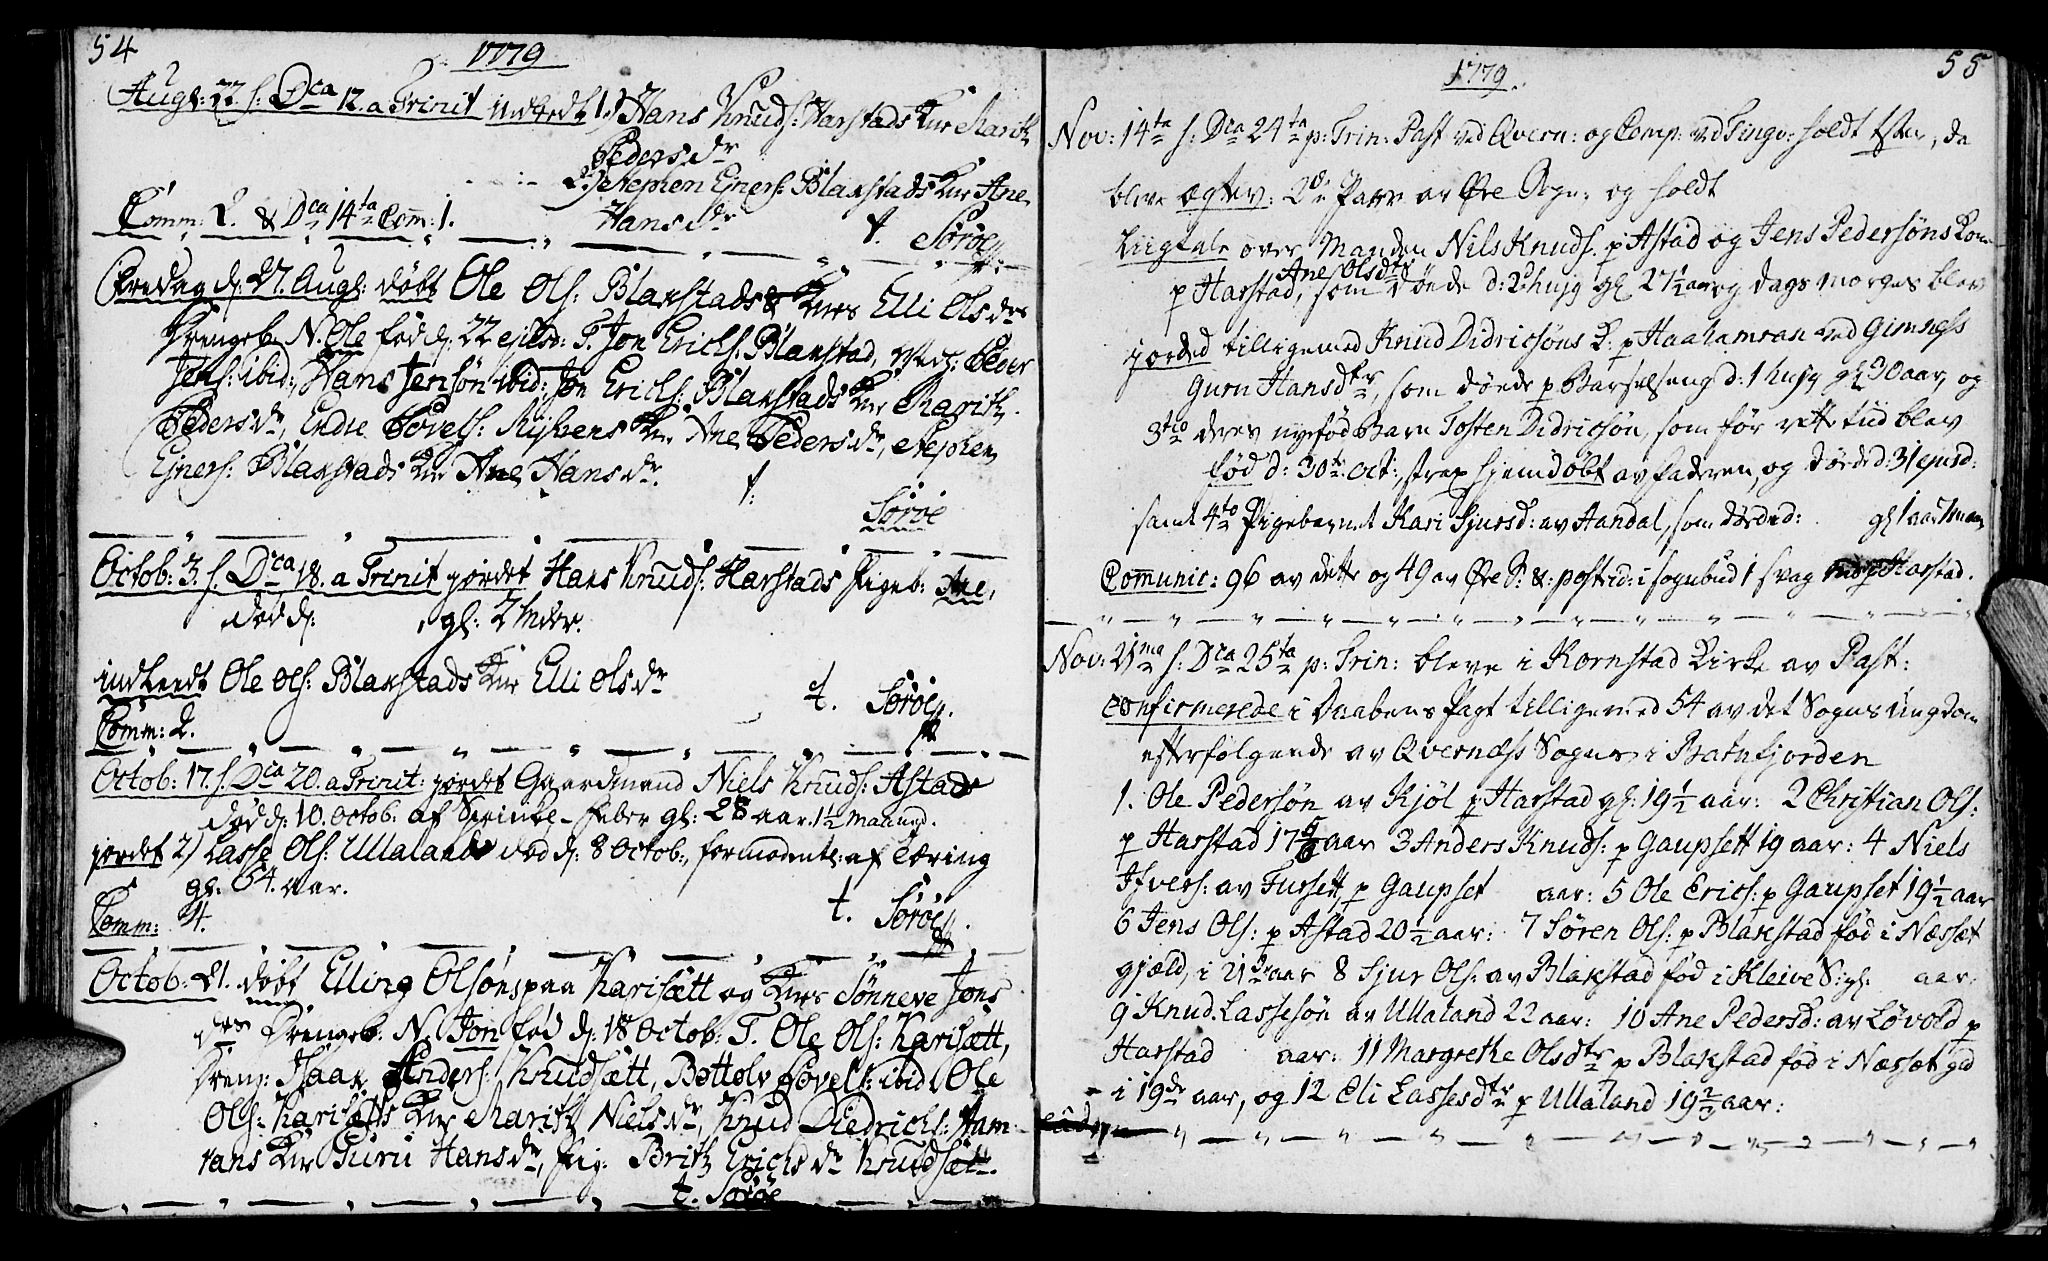 54
1779
Aug: 22. s: Dca 12. a Trinit indledt 1.) Hans Knuds: Harstads Kne Marith
Peders Dr
2.) Stephen Ejners: Blakstads Kne Ane
Hans Dr
Comm: 2. & Dca 14ta Com: 1. t. Sørøe
Fredag d: 27. Aug: døbt Ole Ols: Blakstads & Knes Elli Ols drs
Drengeb. N. Ole fød d: 22 ejusd: T. Jon Erichs: Blakstad, Peder
Jens: ibid:, Hans Jensøn ibid: Jon Erichs: Blakstads Kne Marith
Peders dr, Endre Povels: Kne Ane Peders dr, Stephen
Ejners: Blakstads Kne Ane Hans dr. t:
Sørøe
Octob: 3. s. Dca 18. a Trinit jordet Hans Knuds: Harstads Pigeb: Ane,
død d: , gl: 2 Mdr.
indleedt Ole Ols: Blakstads Kne Elli Ols dr
t. Sørøe
Comm: 2.
Octob: 17. s. Dca 20. a Trinit: jordet Gaardmand Niels Knuds: Astad
død d: 10. Octob: af gl: 28 aar. 1½ Maaned.
jordet 2) Lasse Ols: Ullaland død d: 8 Octob:, formodentl: af Tæring
gl: 64. aar.
Comm: 4. t. Sørøe
Octob: 21. døbt Elling Olsøns paa Karisætt og Knes Sønneve Jons
drs Drengeb: N. Jon fød d: 18 Octob: T. Ole Ols: Karisætt,
Dreng: Isaak Anders: Knudsætt, Bottolv Povels: ibid Ole
Ols: Karisætts Kne Marith Niels dr, Knud Diedrichs: Ham-
rans Kne Guru Hans dr, Pig: Brith Erichs dr Knudsætt.
t. Sørøe
55
1779.
Nov: 14ta s: Dca 24ta p: Trin: Past ved Qvern: og Comp: ved Tingv: holdt, da
bleve ægtev: 2de Parr av Øre Sogn; og holdt
Liigtale over Manden Nils Knuds. p Astad og Jens Pedersøns Kone
Ane Olsdtr
p Harstad, som døde d: 2d hujq gl 27½ aar og Dags morges blev
jorded tilligemed Knud Didricsøns K. p Haahamran ved Gimnæss
Guru Hansdtr, som døde p Barselseng d: 1 hujq gl 30 aar, og
3tio deres nyefød Barn Tosten Didricsøn, som før rette tiid blev
fød d: 30te Oct:, strax hjemdøbt av Faderen, og døde d: 31 ejusd:
samt 4to Pigebarnet Kari Sjursd: av Aandal, som døde d: gl 1 aar 7 maan
Communic: 96 av dette og 49 av Øre S: &: post id: i sognebud 1 svag p Harstad.
Nov: 21ma s: Dca 25ta p: Trin: bleve i Kornstad Kirke av Past:
confirmerede i Daabens Pagt tilligemed 54 av det Sogns Ungdom
efterfølgende av Qvernæss Sogn i Batnfjorden
1. Ole Pedersøn av Kjøl p Harstad gl: 19½ aar: 2 Christian Ols:
p Harstad 17 5/6 aar 3 Anders Knuds: p Gaupsett 19 aar: 4 Niels
Ifvers: av Fursett, p Gaupset aar: 5 Ole Erics: p Gaupset 19½ aar
6 Jens Ols: p Astad 20½ aar: 7 Søren Ols: p Blakstad fød i Næsset
gjæld, i 21de aar 8 Sjur Ols: av Blakstad fød i Kleive S: gl. aar:
9 Knud Lassesøn av Ullaland 22 aar: 10 Ane Pedersd: av Løvold p
Harstad aar: 11 Margrethe Olsdtr p Blakstad fød i Næsset gld
i 19de aar, og 12 Eli Lassesdtr p Ullaland 19 2/3 aar: